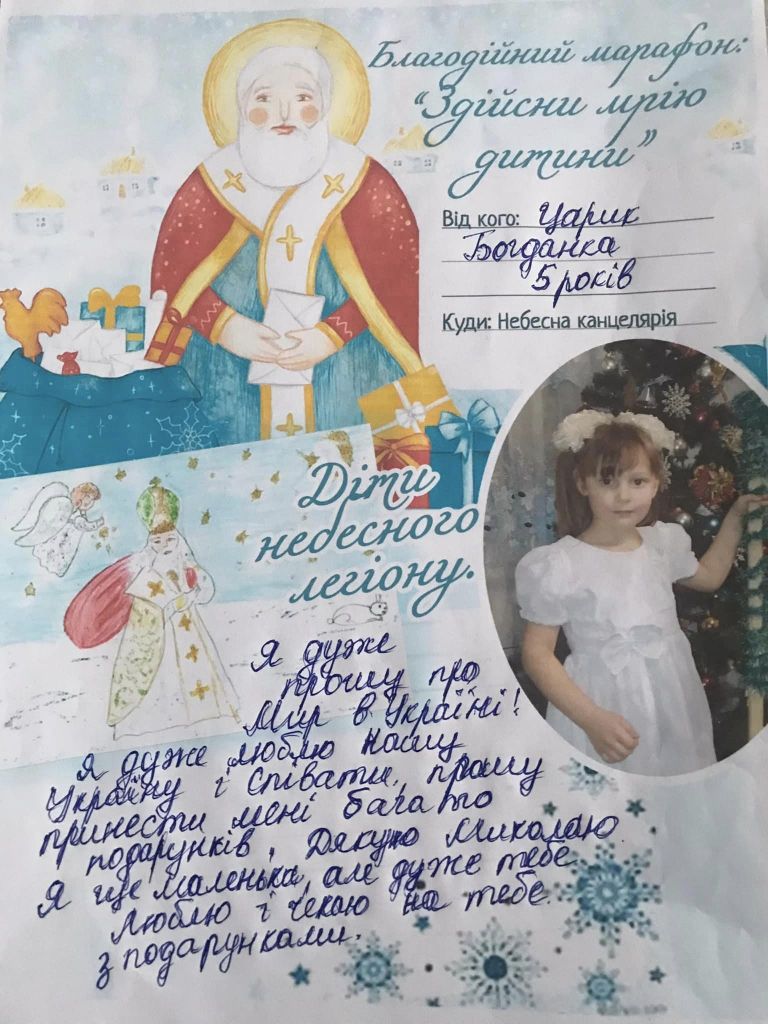 Благодійний марафон:
"Здійсни мрію
дитини"
Від кого: Царик
Богданка
5 років
Куди: Небесна канцелярія
Діти
небесного
легіону.
Я дуже
прошу про
Мир в Україні!
Я дуже люблю нашу
Україну і співати, прошу
принести мені багато
подарунків. Дякую Миколаю.
Я ще маленька, але дуже тебе
люблю і чекаю на тебе.
з подарунками.